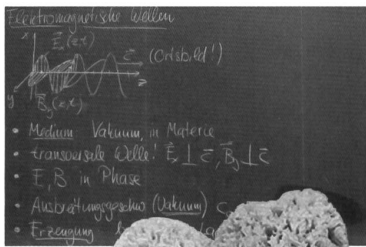 Elektromagnetische Wellen
x
(Ortsbild')
z
y
• Medium Vakuum, in Materie
• transversale Welle! E ⊥ c, B ⊥ c
• E, B in Phase
• Ausbreitungsgeschw (Vakuum) c
• Erzeugung